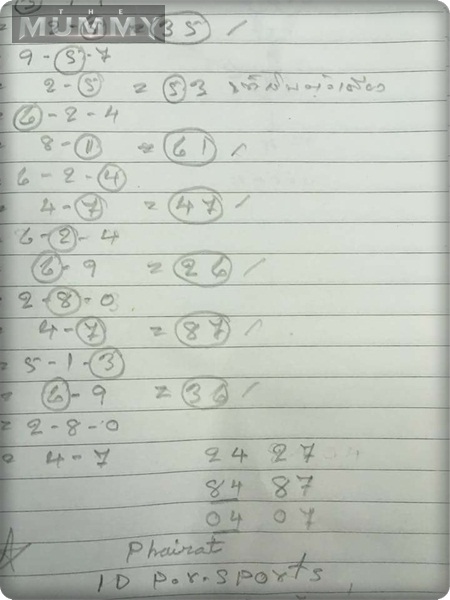 THE
MUMMY
= 35 /
9 - 5 - 7
2 - 5 = 53
6 - 2 - 4
8 - 1 = 61 /
6 - 2 - 4
4 - 7 = 47 /
6 - 2 - 4
6 - 9 = 26 /
2 - 8 - 0
4 - 7 = 87 /
= 5 - 1 - 3
= 6 - 9 = 36 /
= 2 - 8 - 0
= 4 - 7 24 27
84 87
04 07
Phairat
ID P.r.sports